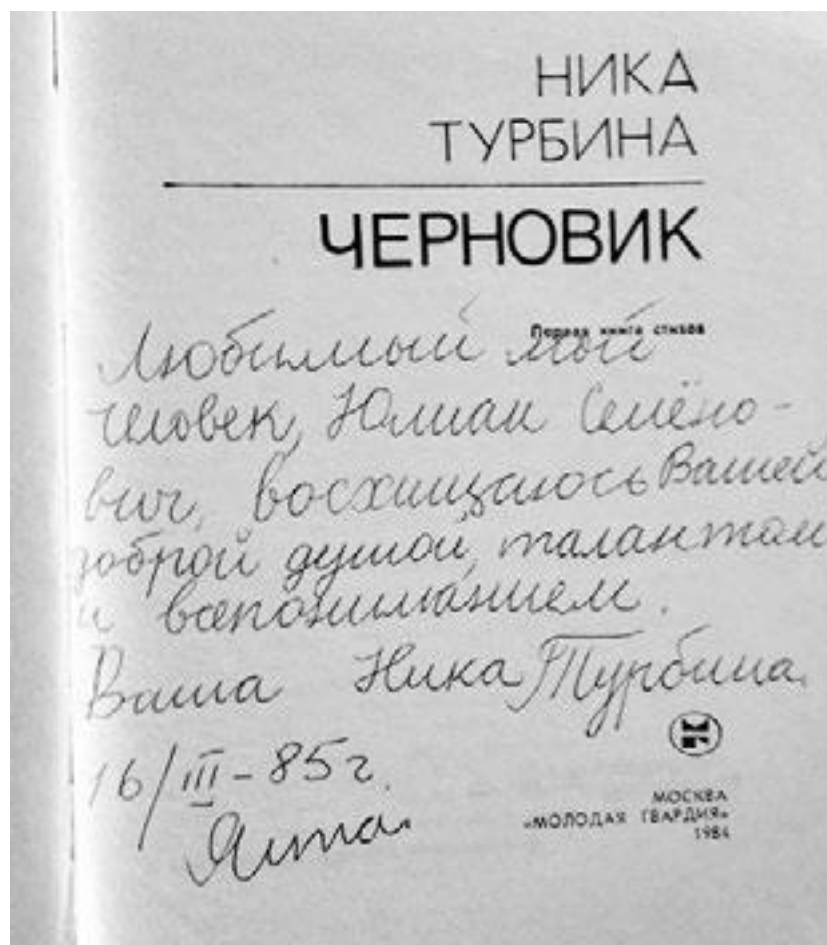 НИКА
ТУРБИНА
ЧЕРНОВИК
Первая книга стихов
Любимый мой
человек, Юлиан Семёно-
вич, восхищаюсь Вашей
доброй душой, талантом
и всепониманием.
Ваша Ника Турбина.
16/III-85г.
Ялта.
МОСКВА
«МОЛОДАЯ ГВАРДИЯ»
1984